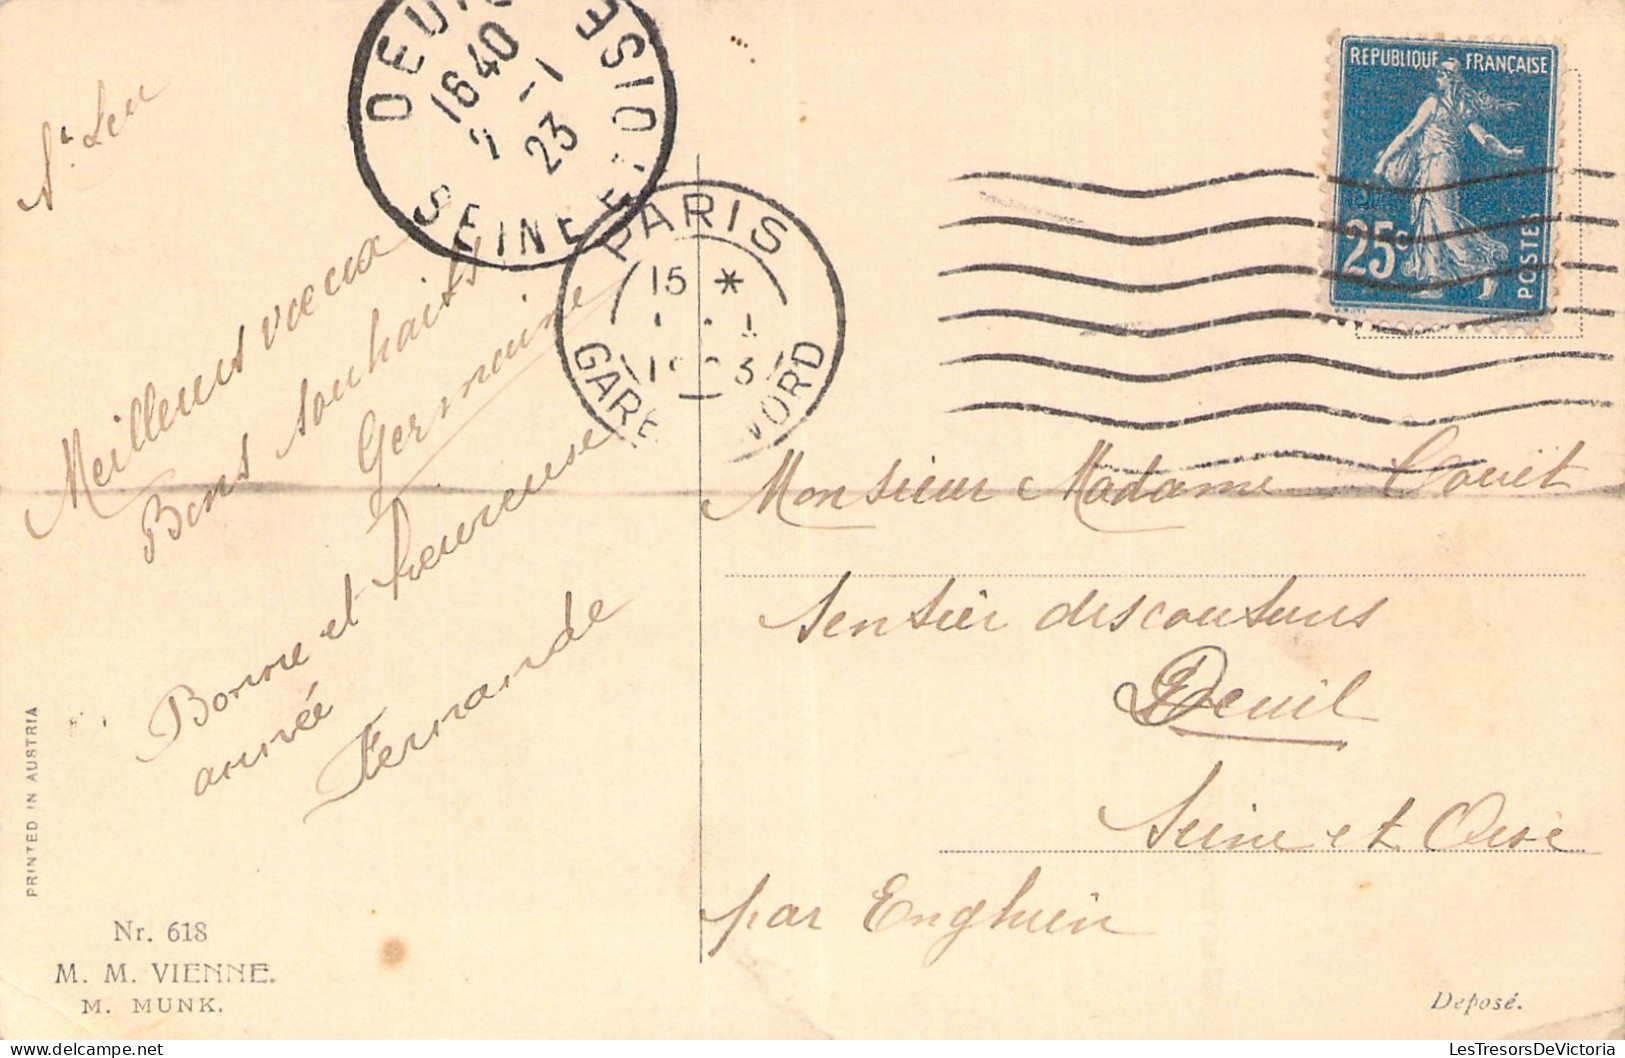 St Leu
Meilleurs vœux
Bons souhaits
Germaine
Bonne et heureuse
année
Fernande
DEUIL
16 40
2 -1
23
SEINE ET OISE
PARIS
15 *
1 · 1
GARE NORD
REPUBLIQUE FRANÇAISE
25c
POSTES
Monsieur Madame Couet
Sentier des couturs
Deuil
Seine et Oise
par Enghien
PRINTED IN AUSTRIA
Nr. 618
M. M. VIENNE.
M. MUNK.
Deposé.
LesTresorsDeVictoria